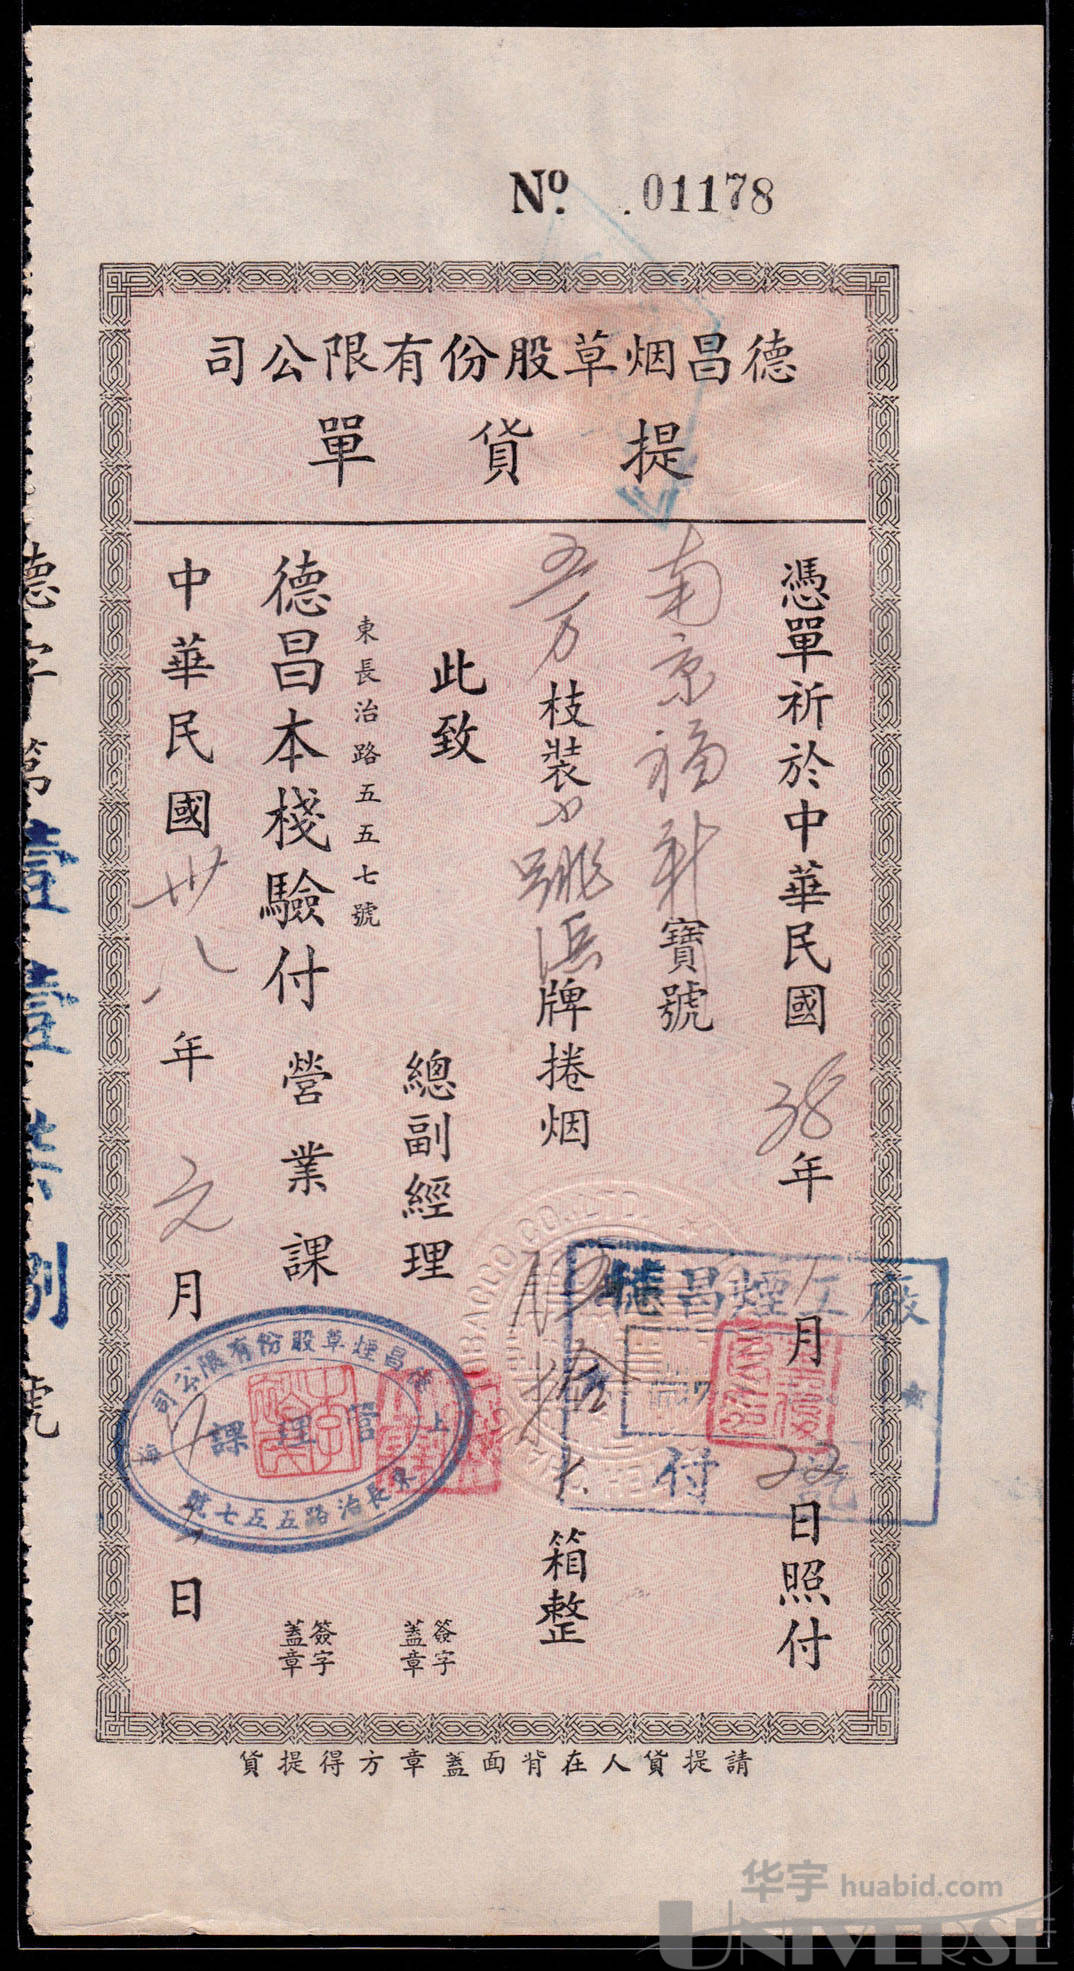 Nº. 01178
德昌烟草股份有限公司
提貨單
憑單祈於中華民國38年 月22日照付
南京福新寶號
五万枝装 牌捲烟 拾大箱整
此致
總副經理
簽字
蓋章
東長治路五五七號
德昌本棧驗付
營業課
簽字
蓋章
中華民國卅八年元月 日
請提貨人在背面蓋章方得提貨
德字第壹壹柒捌號
德昌煙工廠
付訖
德昌煙草股份有限公司
上海
管理課
東長治路五五七號
TOBACCO CO., LTD.
华宇 huabid.com
UNIVERSE